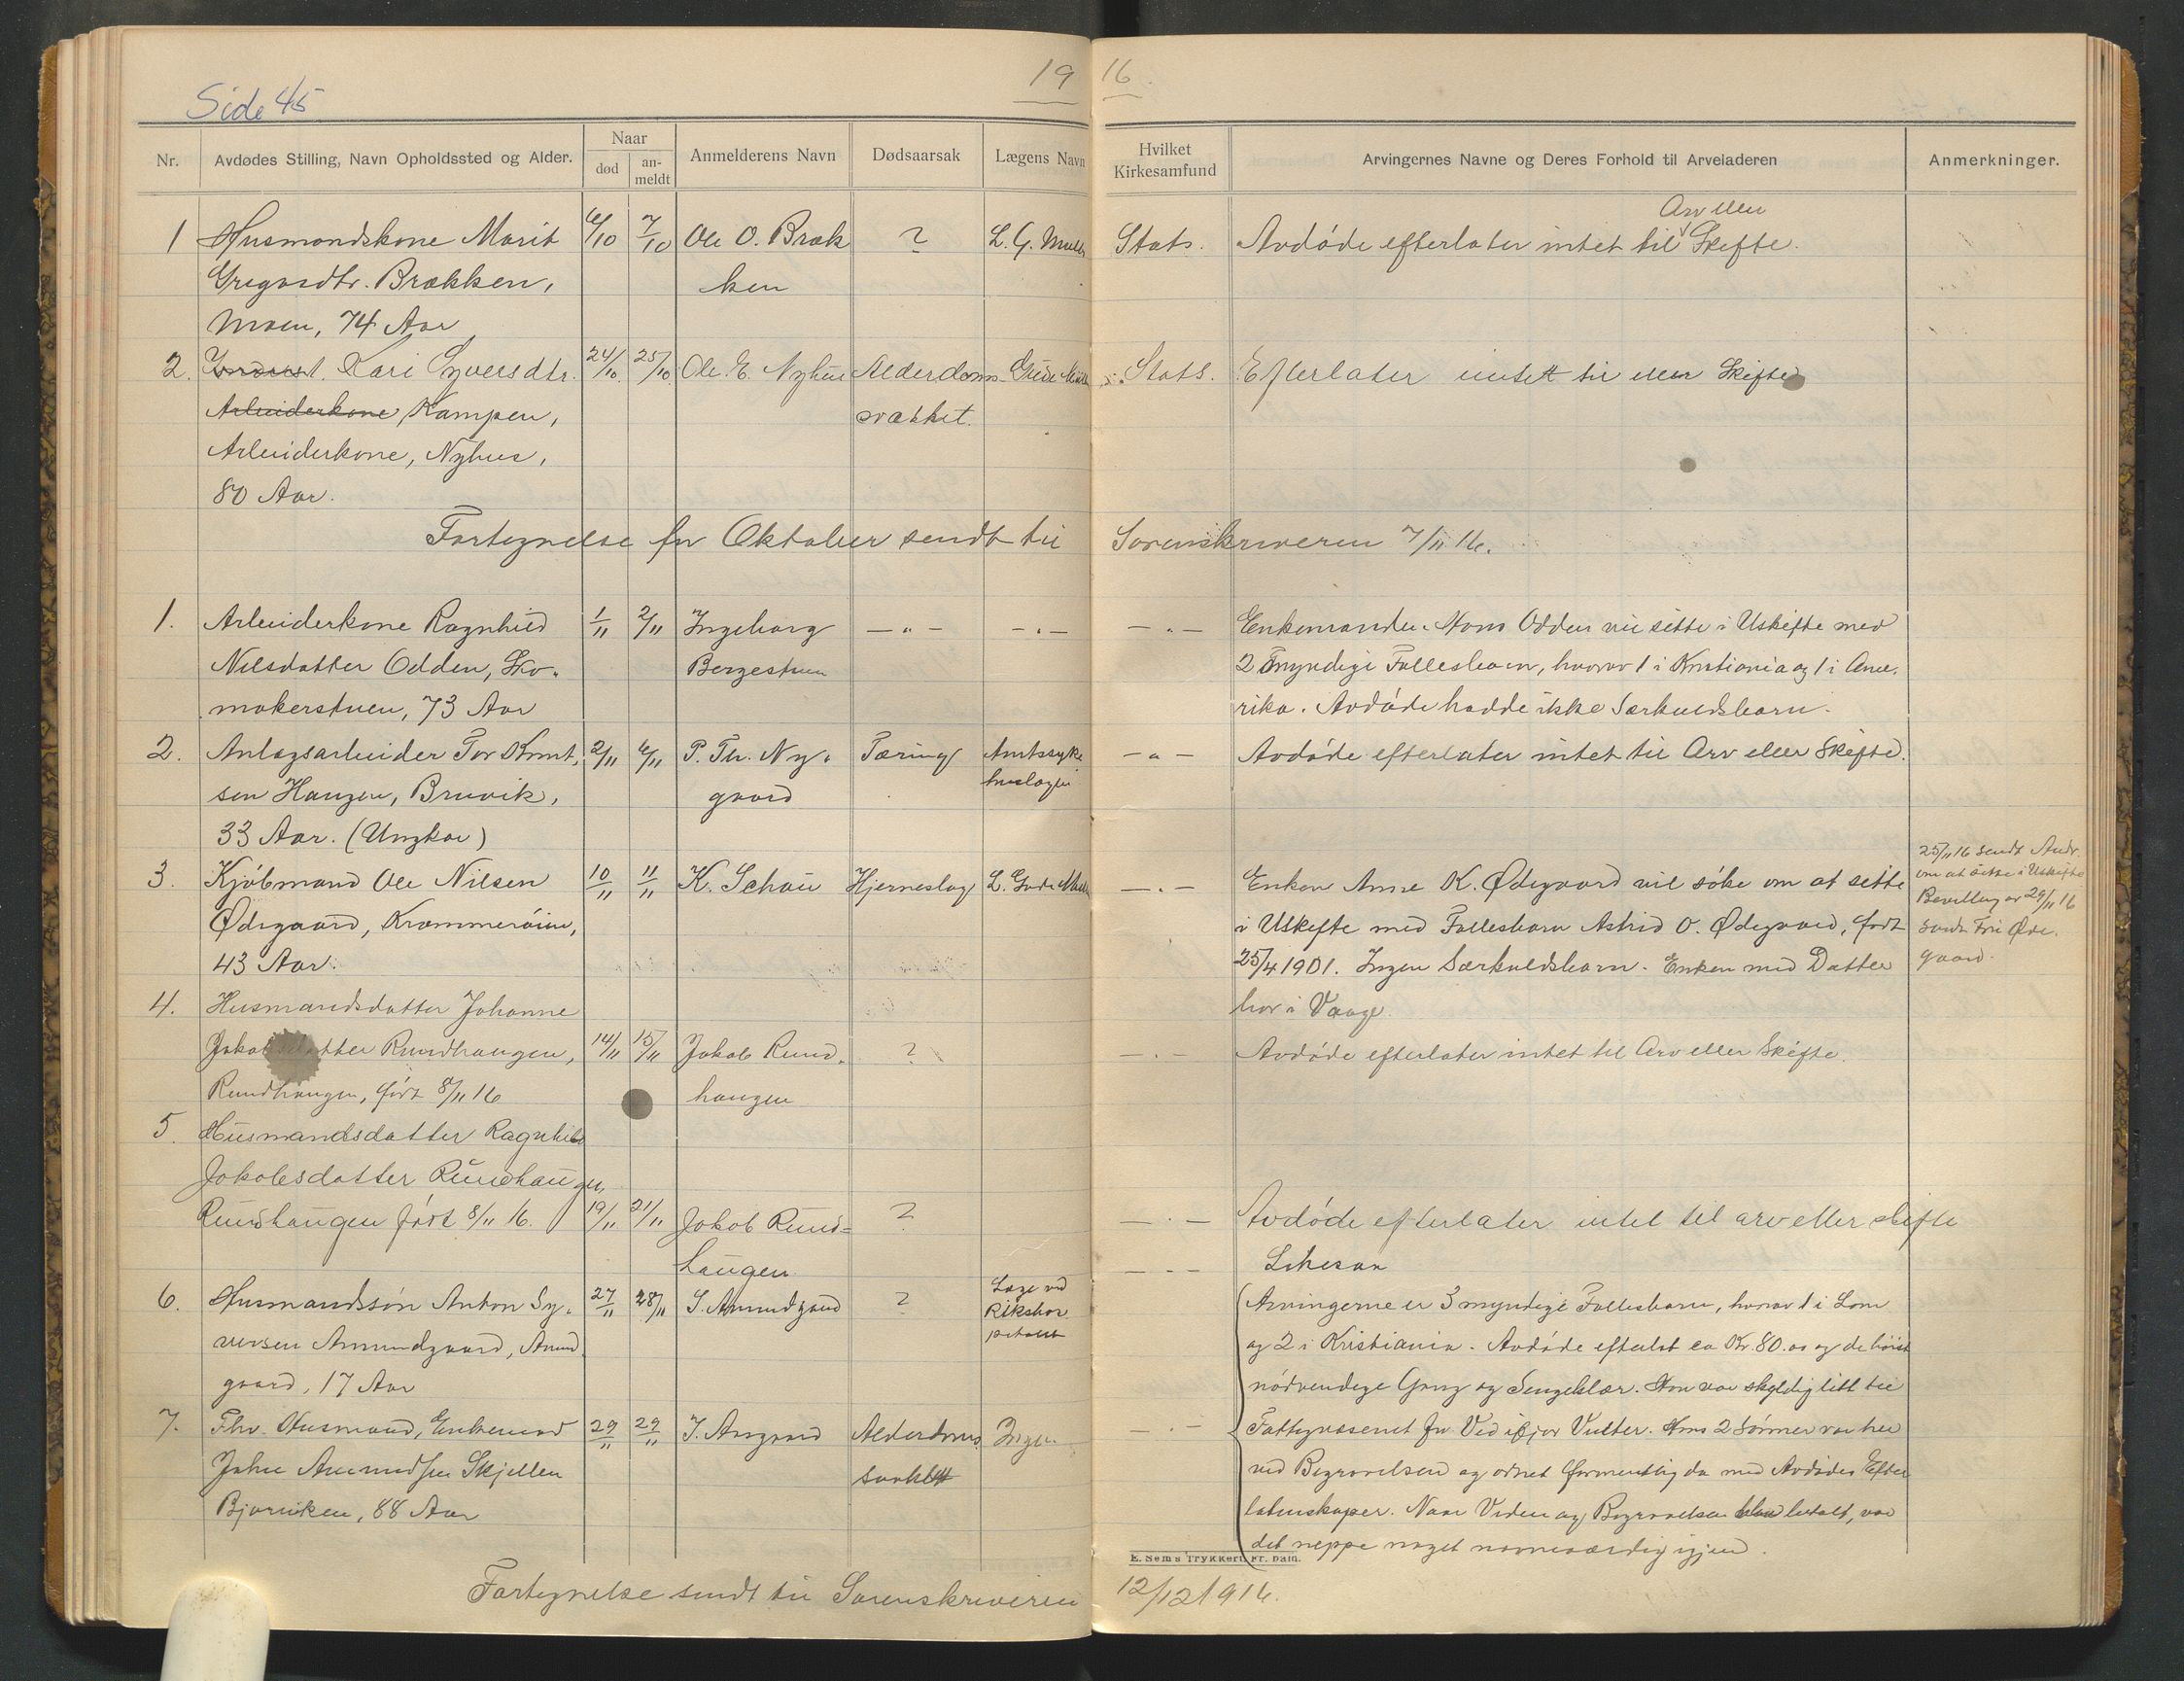 Side 45
19 16
Nr. Avdødes Stilling, Navn Opholdssted og Alder. Naar død an-meldt Anmelderens Navn Dødsaarsak Lægens Navn Hvilket Kirkesamfund Arvingernes Navne og Deres Forhold til Arveladeren Anmerkninger.
1 Husmandskone Marit 6/10 7/10 Ole O. Bræk ? L. G. Stats. Avdøde efterlater intet til Arv eller Skifte.
Brækken, ken
Moen, 74 Aar
2. Kari Syversdtr. 24/10. 25/10. Ole E. Nyhus Alderdoms Stats. Efterlater intet til eller Skifte
Arbeiderkone Kampen, svækket.
Arbeiderkone, Nyhus,
80 Aar.
Fortegnelse for Oktober sendt til Sorenskriveren 7/11 16.
1. Arbeiderkone Ragnhild 1/11 2/11 Ingeborg — " — — " — — " — Enkemanden Hans Odden vil sitte i Uskifte med
Nilsdatter Odden, Sko- Bergestuen 2 myndige Fællesbarn, hvorav 1 i Kristiania og 1 i Ame-
makerstuen, 73 Aar rika. Avdøde hadde ikke Særkuldsbarn.
2. Anlægsarbeider Tor Knut- 2/11 6/11 P. Th. Ny- Tæring Amtssyke — " — Avdøde efterlater intet til Arv eller Skifte.
sen Haugen, Bruvik, gaard huslægen
33 Aar. (Ungkar)
3. Kjøbmand Ole Nilsen 10/11 11/11 K. Schou Hjerneslag — " — Enken Anne K. Ødegaard vil søke om at sitte
Ødegaard, Krammerøien, i Uskifte med Fællesbarn Astrid O. Ødegaard, født
43 Aar. 25/4 1901. Ingen Særkuldsbarn. Enken med Datter
bor i Vaage.
25/11 16 sendt
om at sitte i Uskifte
Bevilling av 29/11 16
sendt Øde-
gaard.
4. Husmandsdatter Johanne
Jakobsdatter Rundhaugen, 14/11 15/11 Jakob Rund- ? — " — Avdøde efterlater intet til Arv eller Skifte.
Rundhaugen, født 8/11 16 haugen
5. Husmandsdatter Ragnhild
Jakobsdatter Rundhaugen,
Rundhaugen født 8/11 16. 19/11 21/11 Jakob Rund= ? — " — Avdøde efterlater intet til arv eller skifte
haugen
6. Husmandssøn Anton Sy- 27/11 28/11 S. Amundgaard ? Læge ved Rikshos pitalet — " — Likesaa
versen Amundgaard, Amund-
gaard, 17 Aar
7. Fhv. Husmand, Enkemand 29/11 29/11 Alderdoms Ingen — " — Arvingerne er 3 myndige Fællesbarn, hvorav 1 i Lom
Skjellen og 2 i Kristiania. Avdøde efterlot ca Kr. 80.00 og de høist
88 Aar nødvendige Gang og Sengeklær. Han var skyldig litt til
Fattigvæsenet for Ved ifjor Vinter. Hans 2 Sønner var her
ved Begravelsen og ordnet formentlig da med Avdødes Efter
latenskaper. Naar Veden og Begravelsen blev betalt, var
det neppe noget nævneværdig igjen.
E. Sems Trykkeri, Fr.hald.
Fortegnelse sendt til Sorenskriveren 12/12 1916.